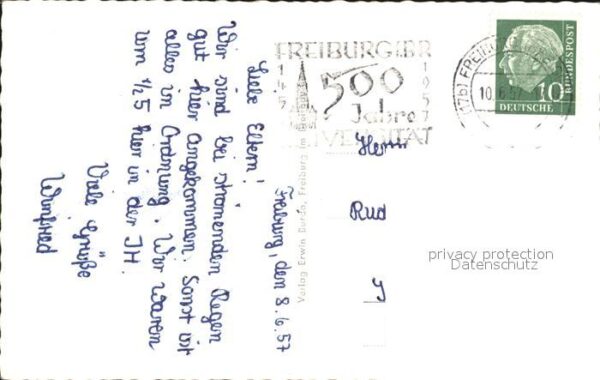 Freiburg, den 8.6.57
Liebe Eltern!
Wir sind bei strömenden Regen
gut hier angekommen. Sonst ist
alles in Ordnung. Wir waren
um 1/2 5 hier in der JH.
Viele Grüße
Winfried
Verlag Erwin Burda, Freiburg im
FREIBURG I BR
1457
1957
500
Jahre
UNIVERSITÄT
(17b) FREIBURG
10.6.57
10
DEUTSCHE
BUNDESPOST
Herrn
Rud
privacy protection
Datenschutz